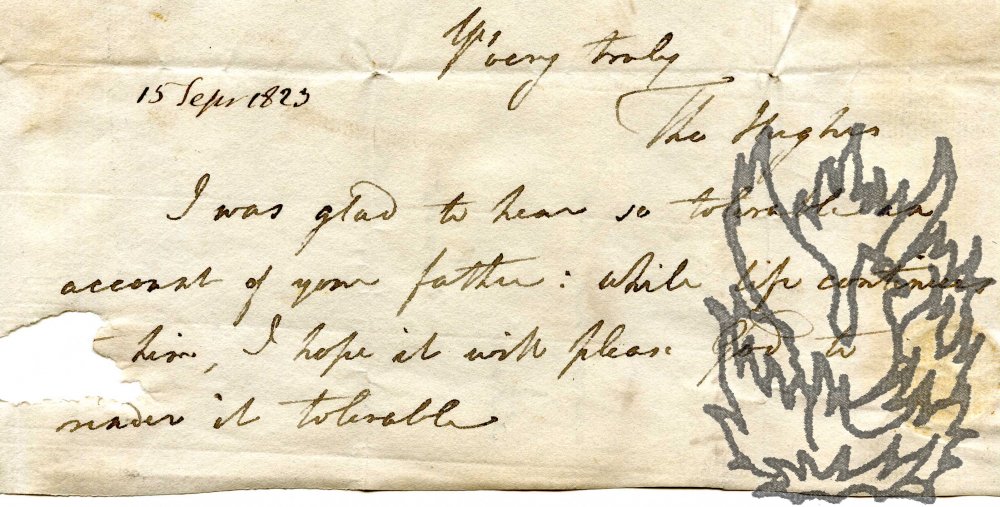 Yrs very truly
15 Sepr 1823
Tho Hughes
I was glad to hear so tolerable an
account of your father: while life continues
him, I hope it will please God to
render it tolerable